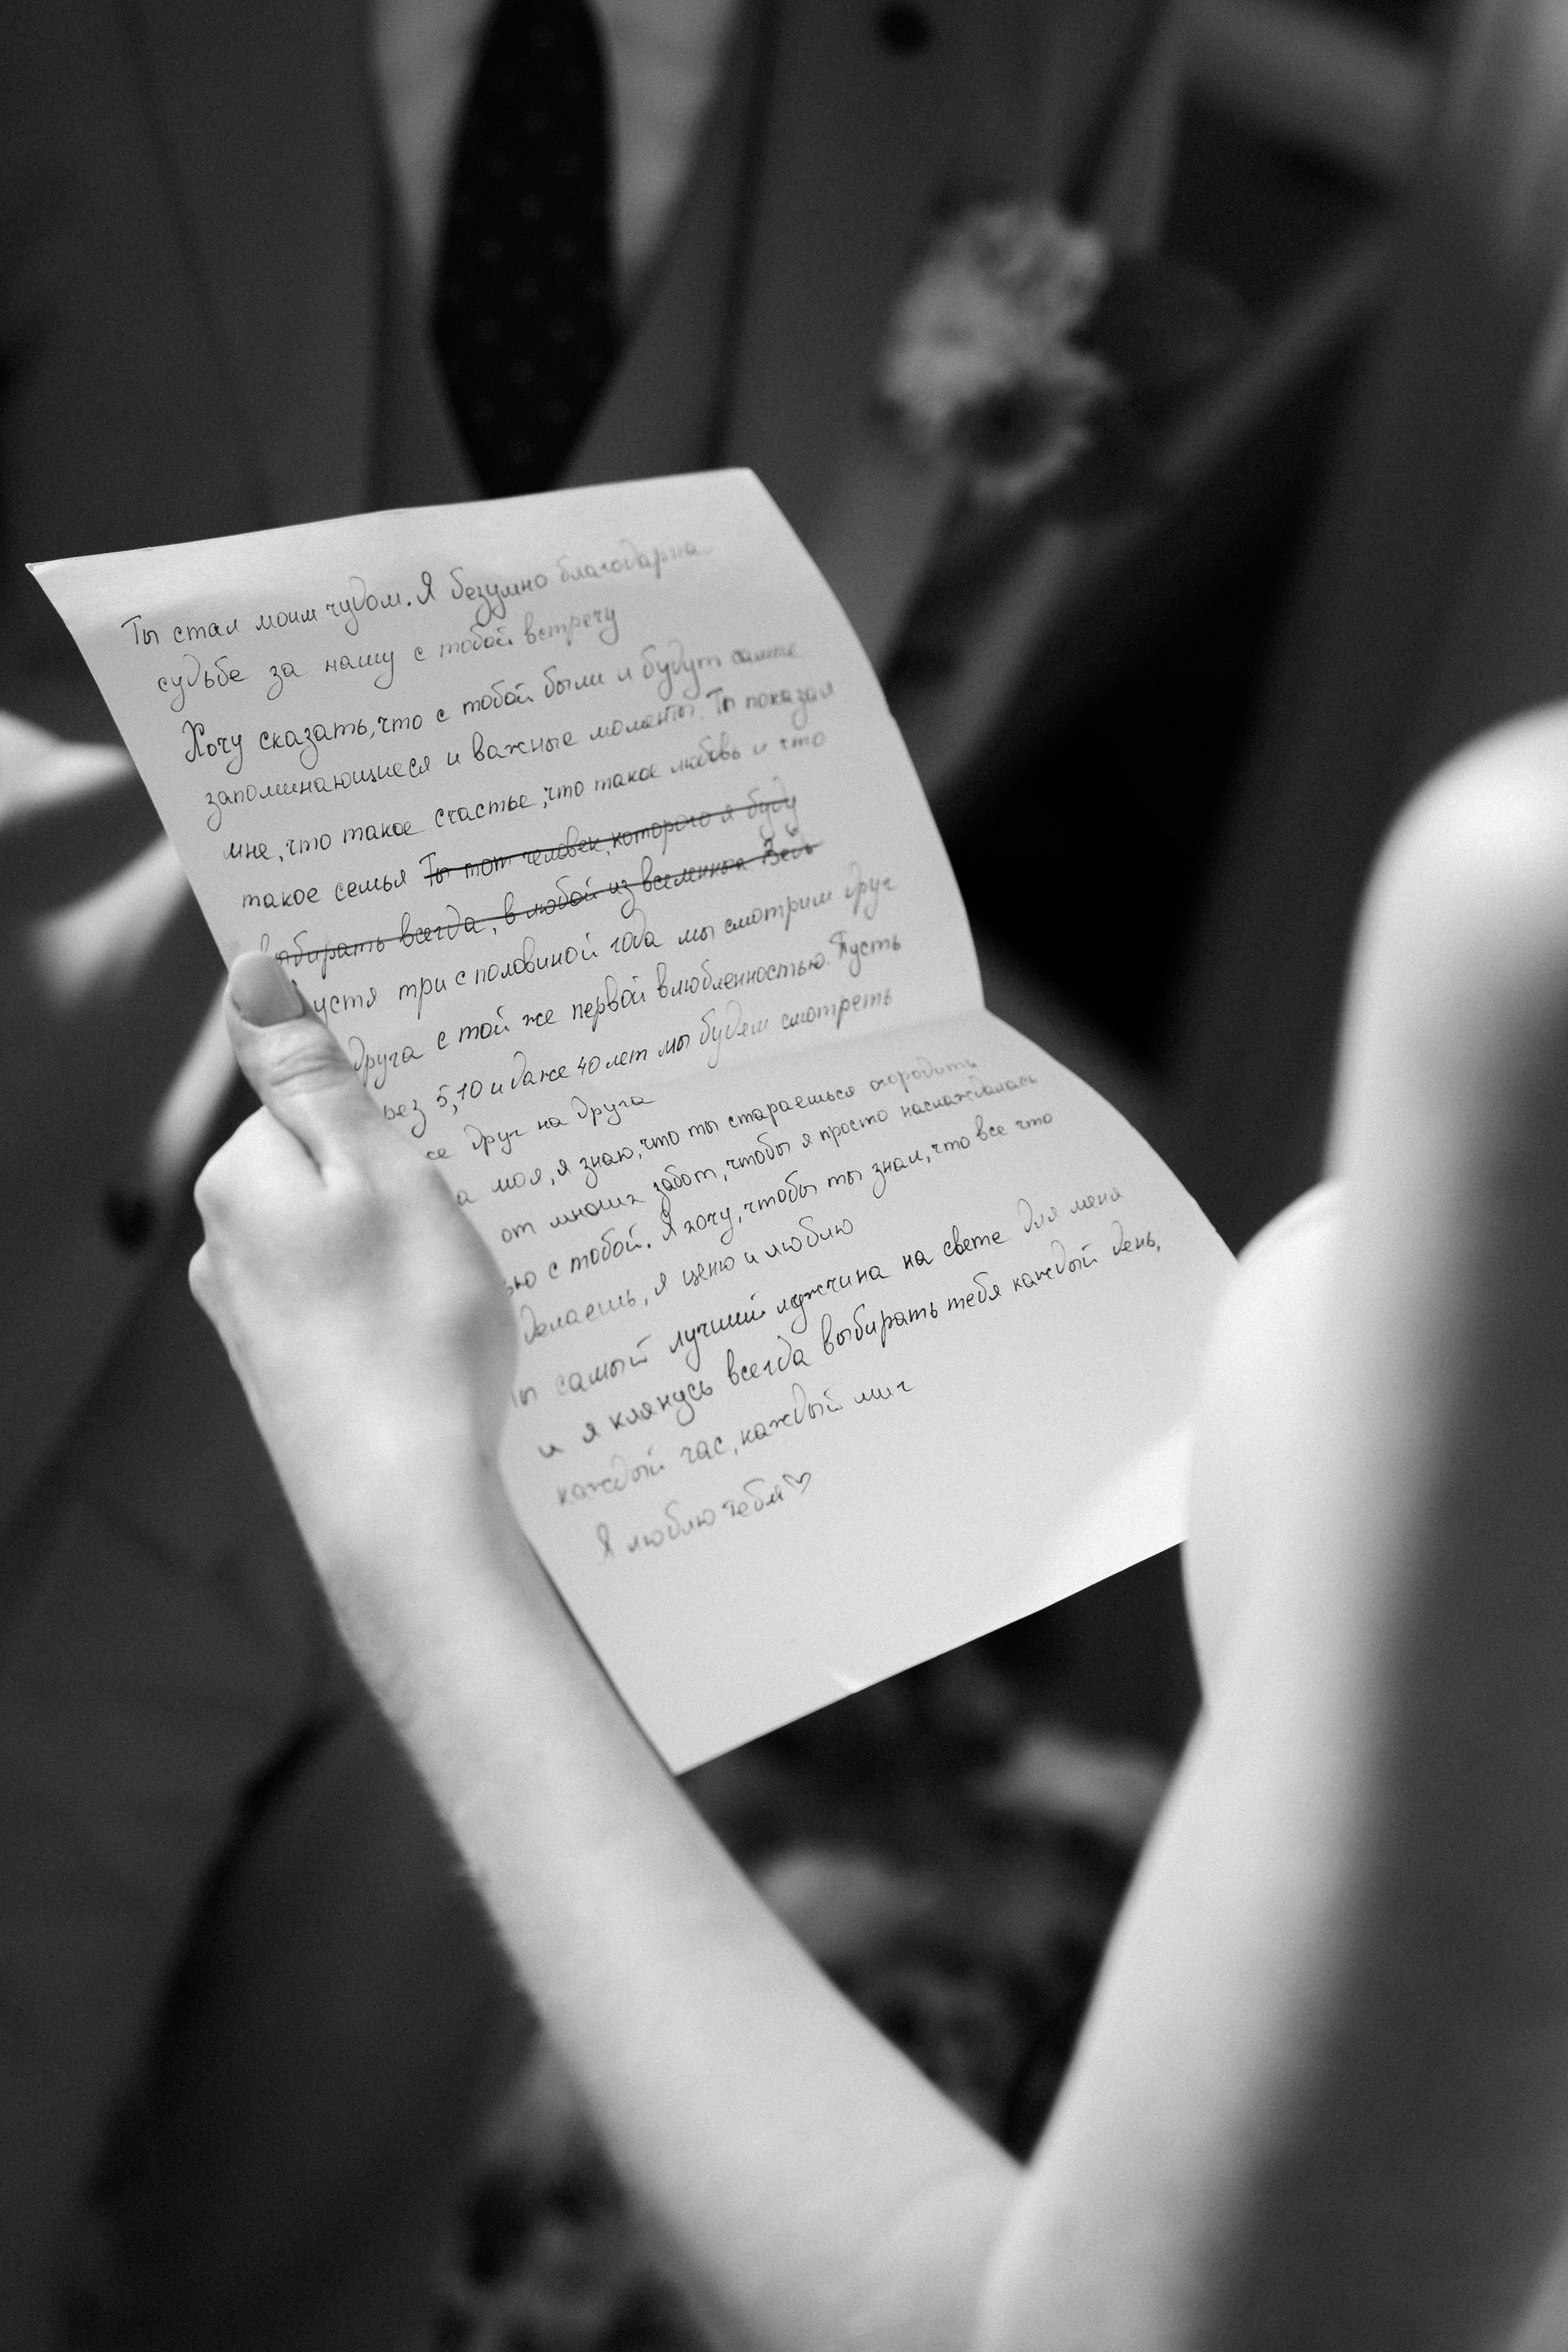 Ты стал моим чудом. Я безумно благодарна
судьбе за нашу с тобой встречу
Хочу сказать, что с тобой были и будут самые
запоминающиеся и важные моменты. Ты показал
мне, что такое счастье, что такое любовь и что
такое семья Ты тот человек, которого я буду
выбирать всегда, в любой из вселенных Ведь
устя три с половиной года мы смотрим друг
друга с той же первой влюбленностью. Пусть
рез 5, 10 и даже 40 лет мы будем смотреть
се друг на друга
а моя, я знаю, что ты стараешься огородить
от многих забот, чтобы я просто наслаждалась
ью с тобой. Я хочу, чтобы ты знал, что все что
делаешь, я ценю и люблю
ы самый лучший мужчина на свете для меня
и я клянусь всегда выбирать тебя каждый день,
каждый час, каждый миг
Я люблю тебя♡